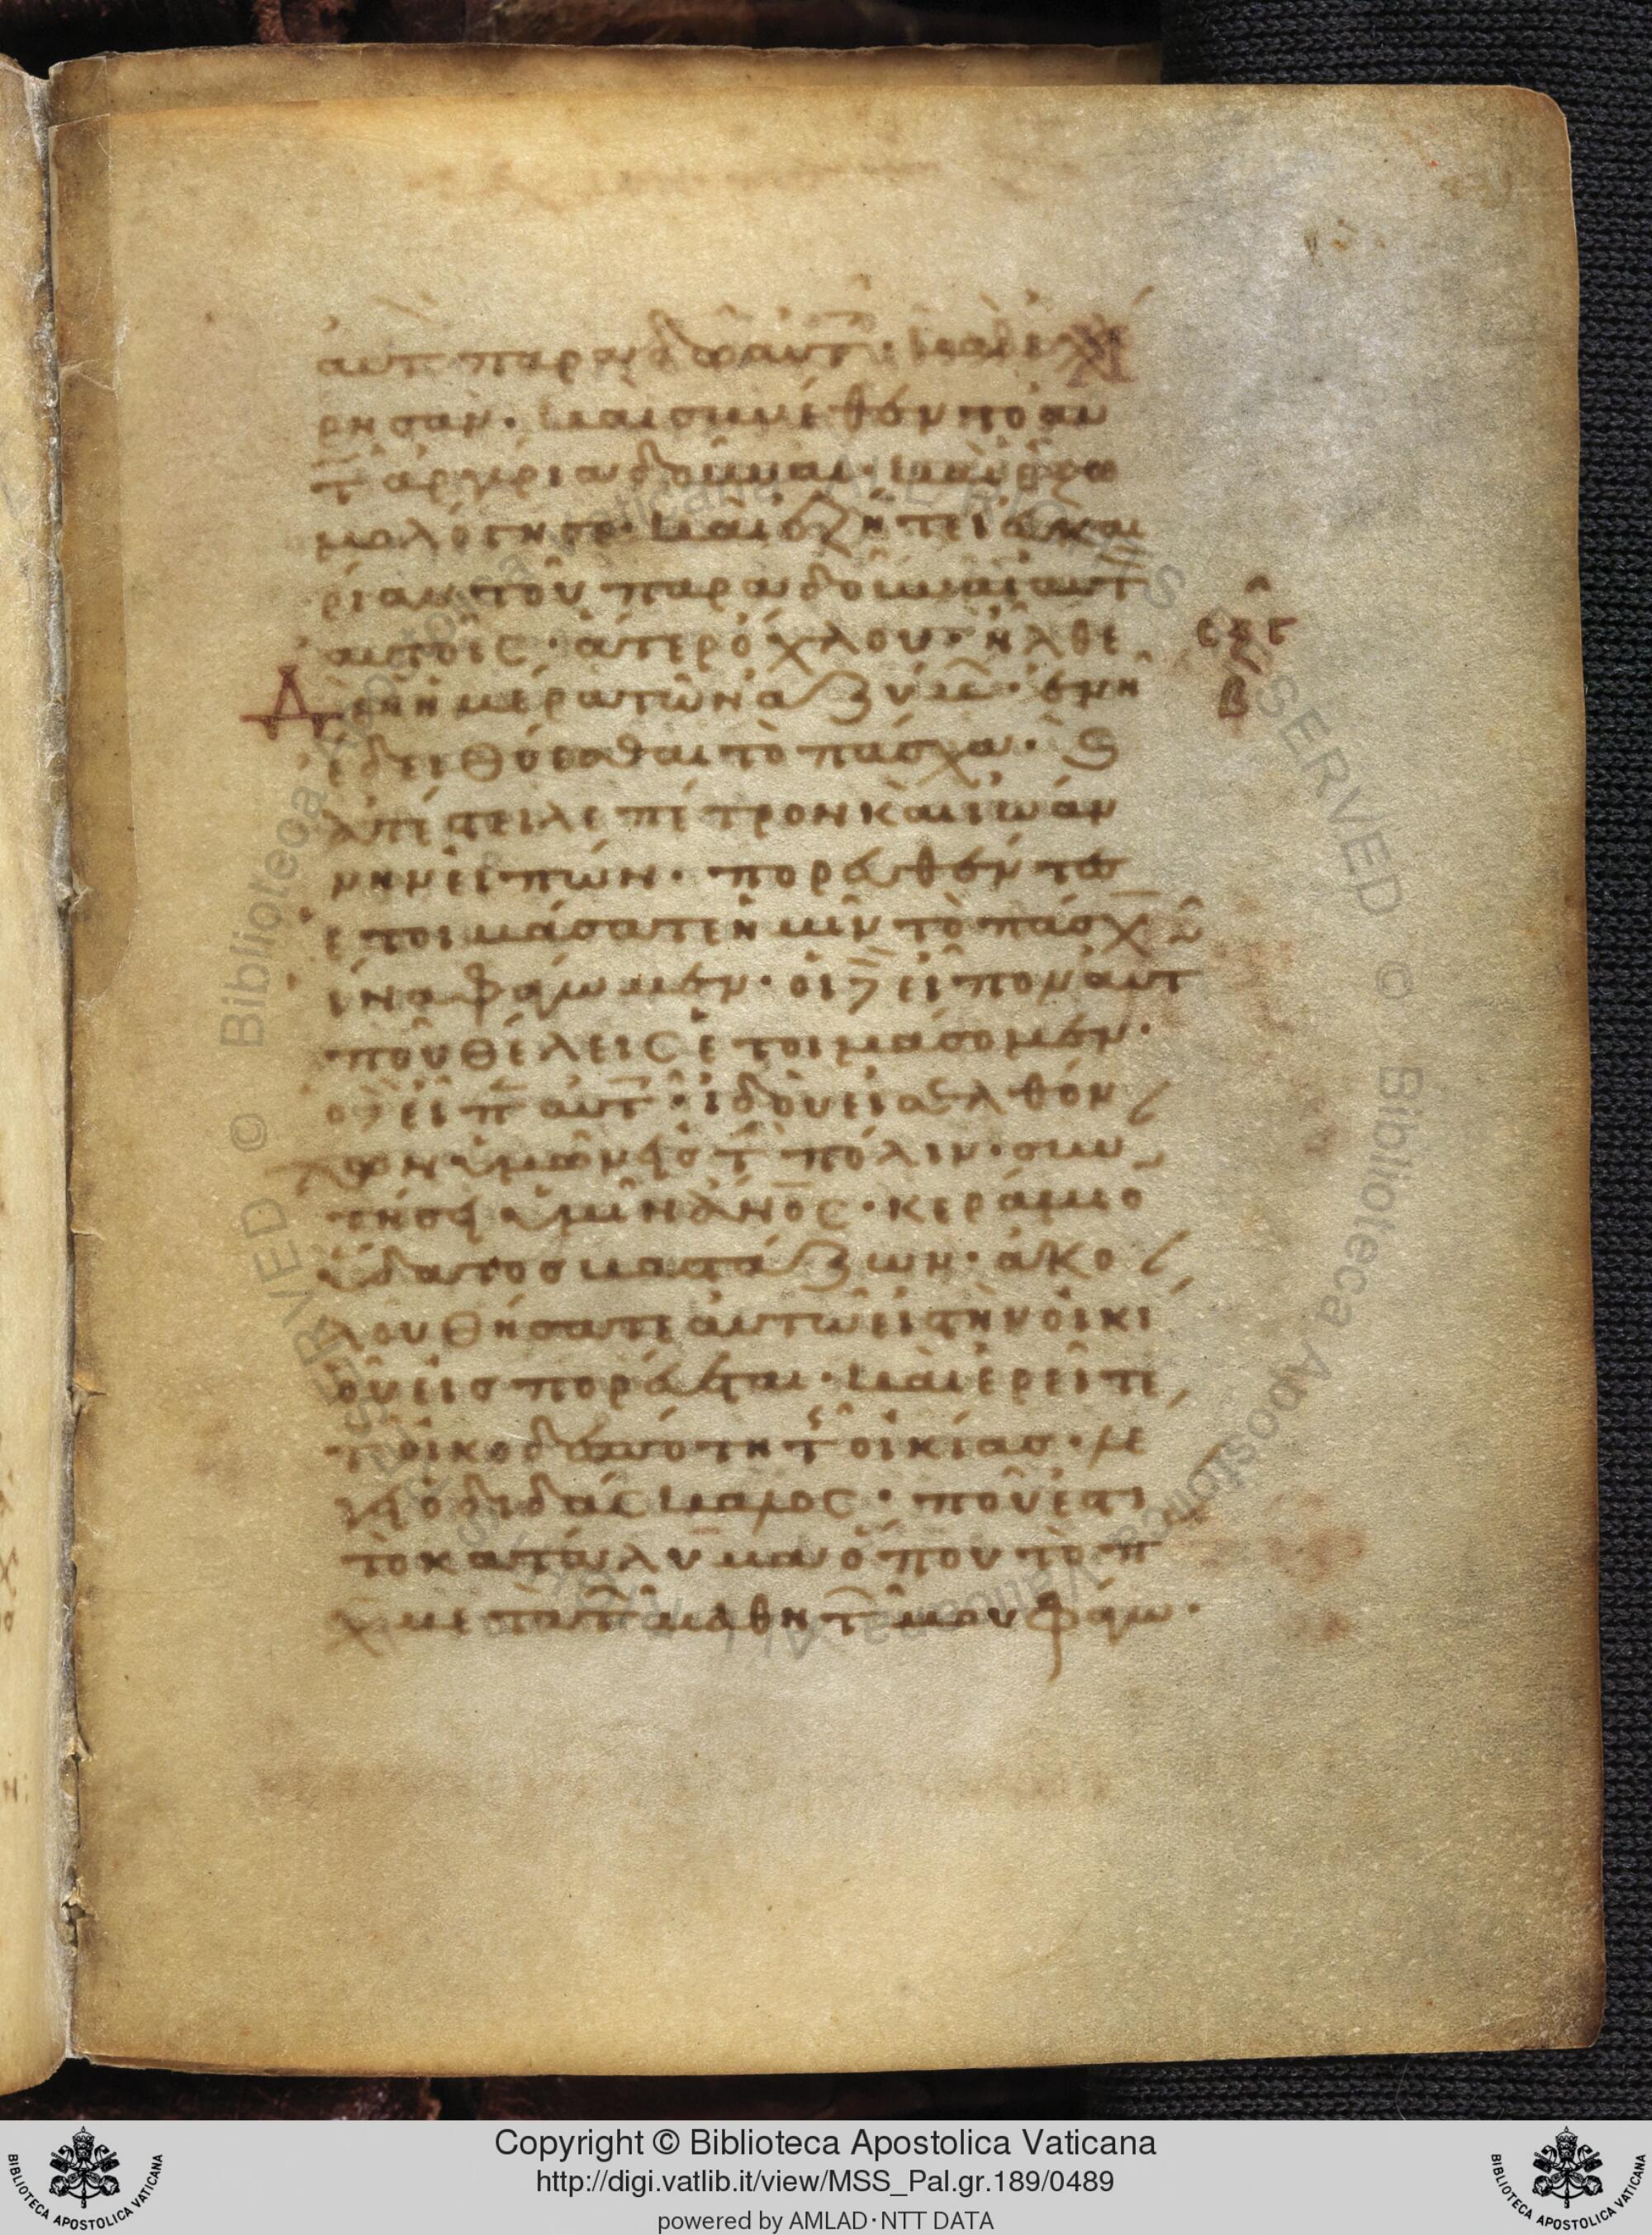 αυτ παραδω αυτ · και εχα
ρησαν · και συνεθεντο αυ
τ αργυρια δουναι · και εξω
μολόγησε · και εζητει ευκαι
ριαν του παραδουναι αυτ
αυτοῖς · άτερ όχλου · ηλθε
Δε η ημέρα τῶν αζύμ · εν η
έδει θύεσθαι τὸ πάσχα · Ϛ
απέστειλε πέτρον καὶ ιωάν
νην ειπών · πορευθέντες
ετοιμάσατε ημῖν τὸ πάσχα
ινα φάγωμεν · οι δε εῖπον αυτ
ποῦ θέλεις ετοιμάσομεν ·
ο δε εῖπ αυτ · ιδοὺ εισελθόν
των υμῶν εις τ πόλιν · συν
τήσει υμῖν ἀνος · κεράμιο
ύδατος βαστάζων · ακο
λουθήσατε αυτῶ εις τὴν οικι
οῦ εισπορεύεται · και ερεῖτε
τ οικοδεσπότη τ οικίας · λε
γει ο διδάσκαλος · ποῦ εστι
τὸ κατάλυμα όπου τὸ π
χ μετα τ μαθητ μου φάγω ·
σξτ
β
Copyright © Biblioteca Apostolica Vaticana
http://digi.vatlib.it/view/MSS_Pal.gr.189/0489
powered by AMLAD · NTT DATA
BIBLIOTECA APOSTOLICA VATICANA
BIBLIOTECA APOSTOLICA VATICANA